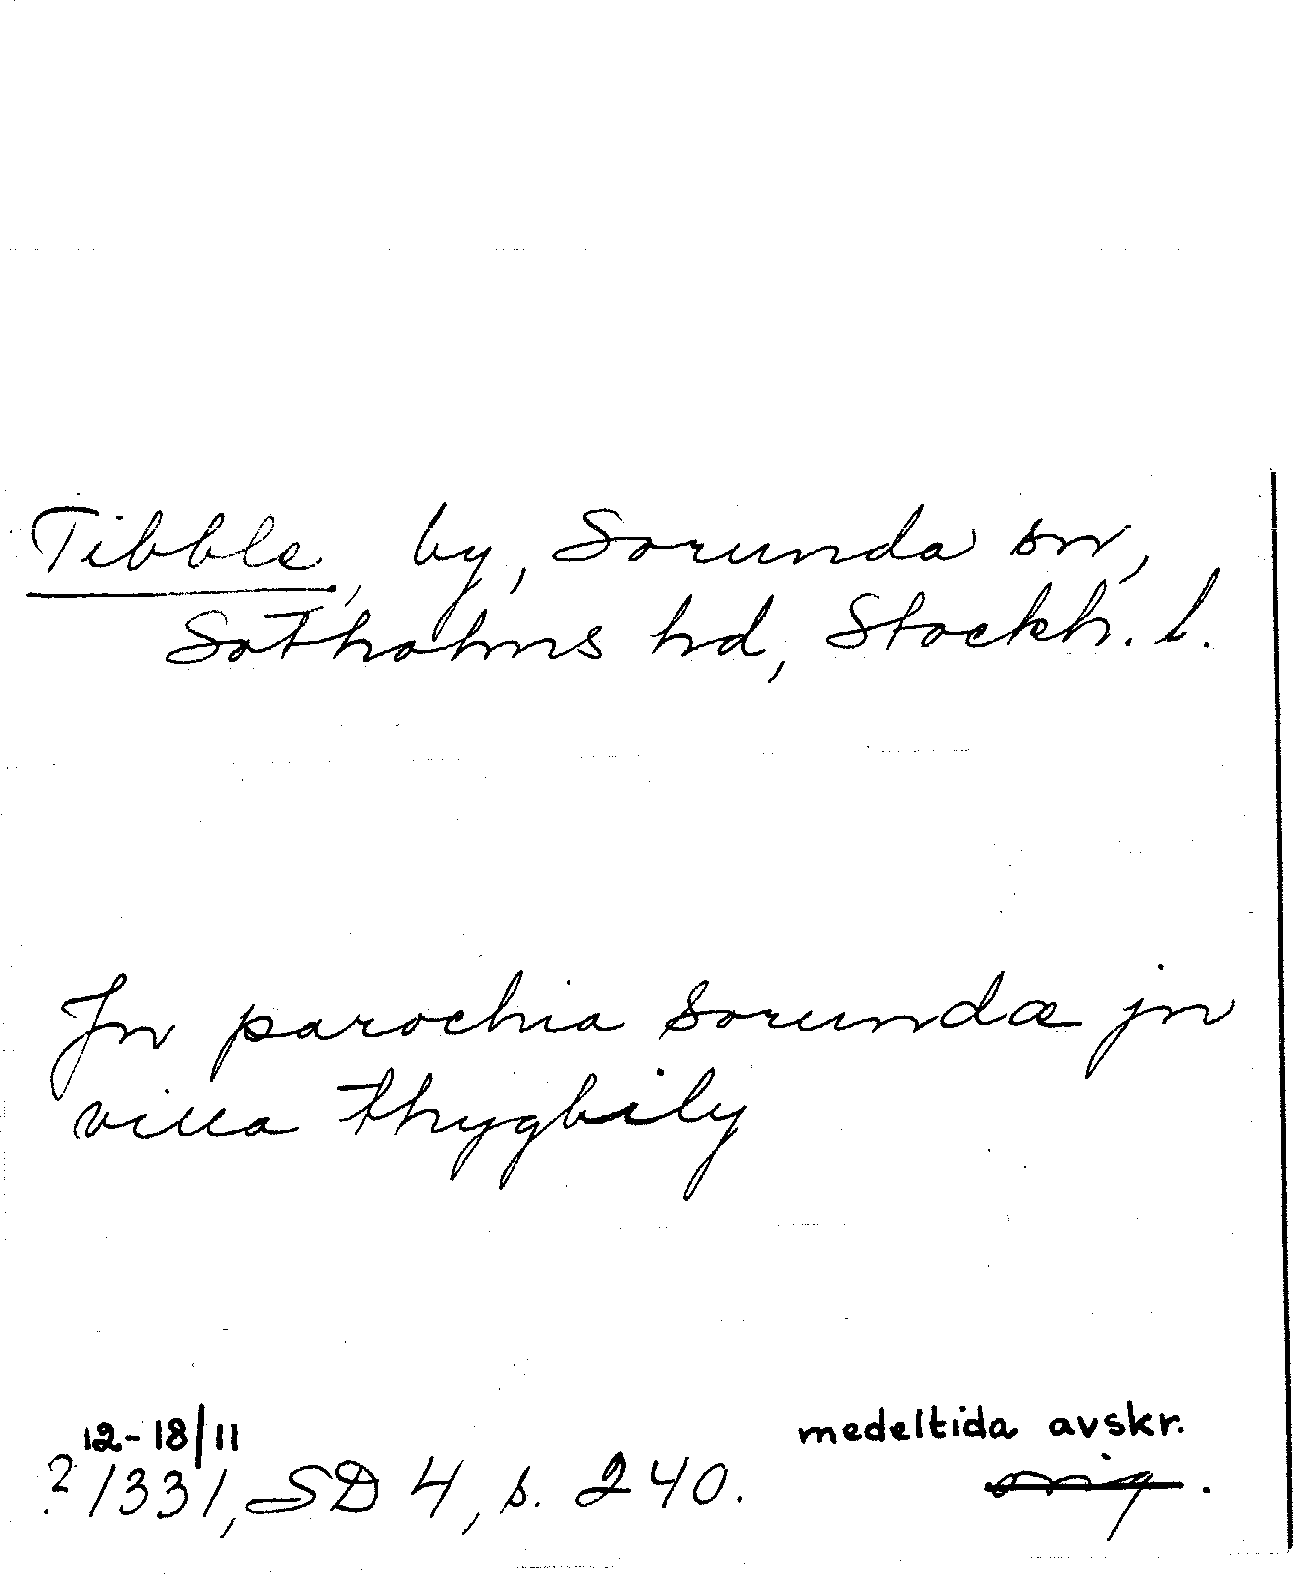 Tibble, by, Sorunda sn,
Sotholms hd, Stockh. l.
Jn parochia sorundæ jn
villa thygbily
12-18/11 medeltida avskr.
? 1331, SD 4, s. 240. orig.